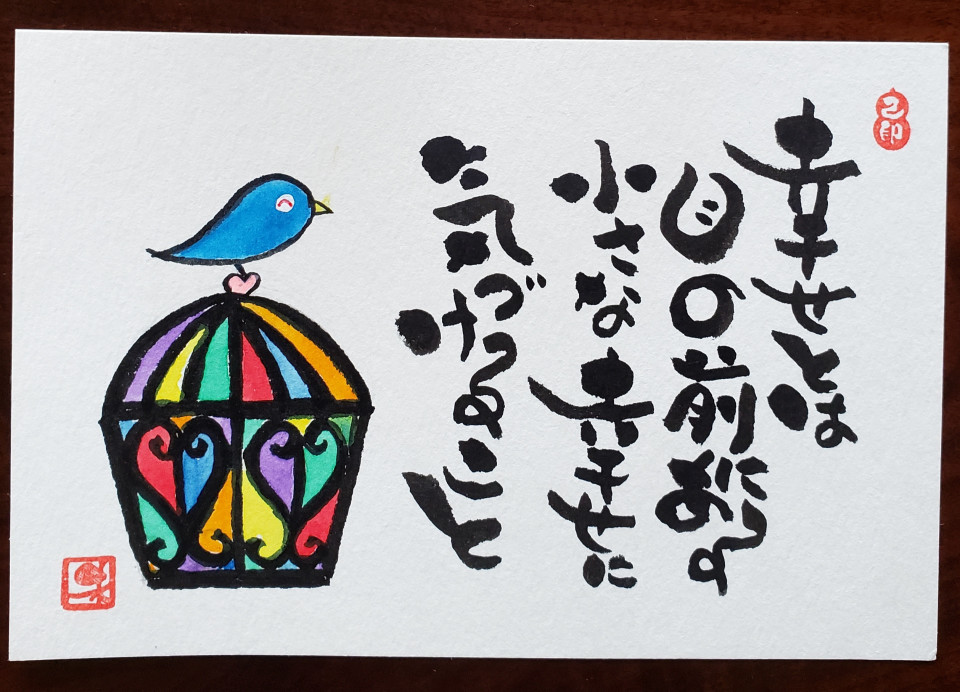 幸せとは
目の前にある
小さな幸せに
気づけること